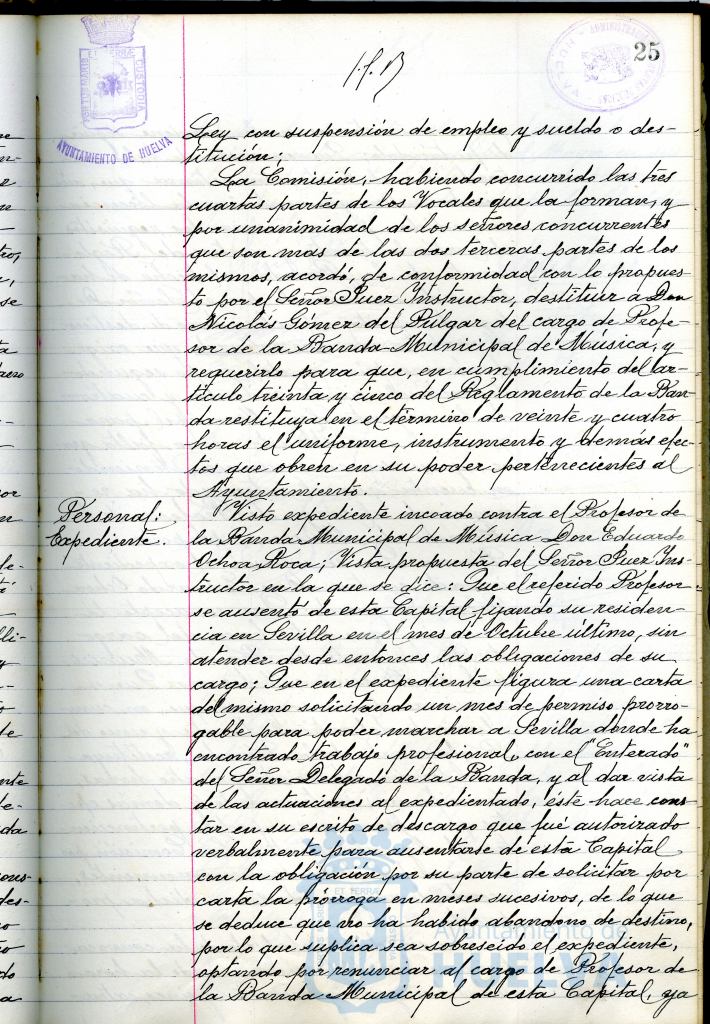 25
AYUNTAMIENTO DE HUELVA
Ley con suspensión de empleo y sueldo o des-
titución;
La Comisión, habiendo concurrido las tres
cuartas partes de los Vocales que la forman, y
por unanimidad de los señores concurrentes
que son mas de las dos terceras partes de los
mismos, acordó, de conformidad con lo propues-
to por el Señor Juez Instructor, destituir a Don
Nicolás Gómez del Pulgar del cargo de Profe-
sor de la Banda Municipal de Música, y
requerirlo para que, en cumplimiento del ar-
tículo treinta y cinco del Reglamento de la Ban-
da restituya en el término de veinte y cuatro
horas el uniforme, instrumento y demás efec-
tos que obren en su poder pertenecientes al
Ayuntamiento.
Personal:
Expediente.
Visto expediente incoado contra el Profesor de
la Banda Municipal de Música Don Eduardo
Ochoa Roca; Vista propuesta del Señor Juez Ins-
tructor en la que se dice: Que el referido Profesor
se ausentó de esta Capital fijando su residen-
cia en Sevilla en el mes de Octubre último, sin
atender desde entonces las obligaciones de su
cargo; Que en el expediente figura una carta
del mismo solicitando un mes de permiso prorro-
gable para poder marchar a Sevilla donde ha
encontrado trabajo profesional, con el "Enterado"
del Señor Delegado de la Banda, y al dar vista
de las actuaciones al expedientado, éste hace cons-
tar en su escrito de descargo que fué autorizado
verbalmente para ausentarse de esta Capital
con la obligación por su parte de solicitar por
carta la prórroga en meses sucesivos, de lo que
se deduce que no ha habido abandono de destino,
por lo que suplica sea sobreseido el expediente,
optando por renunciar al cargo de Profesor de
la Banda Municipal de esta Capital, ya
Ayuntamiento de
HUELVA